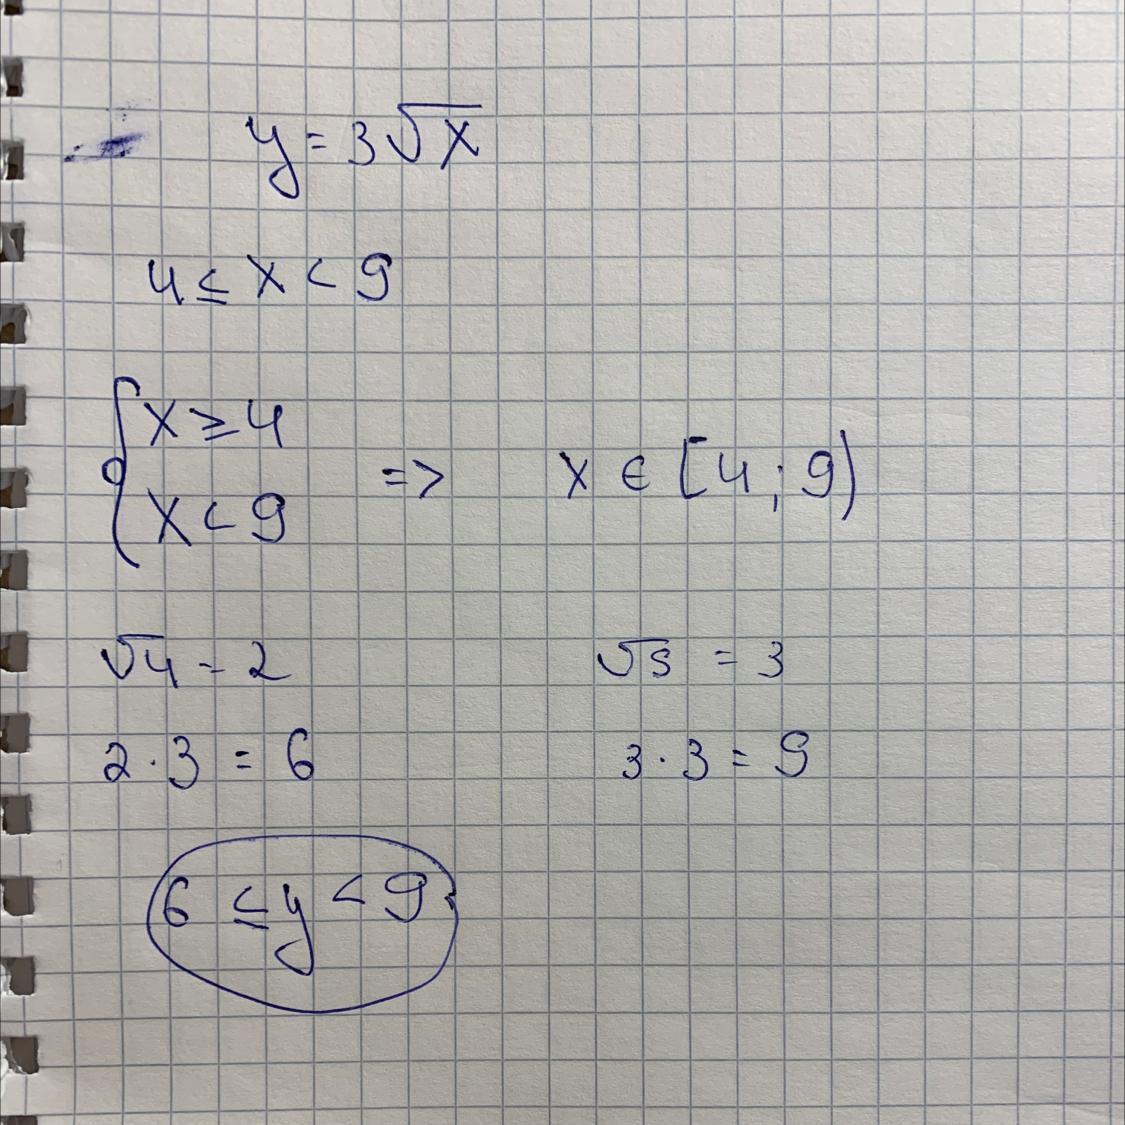 y = 3√x
4 ≤ x < 9
{ x ≥ 4
x < 9 => x ∈ [4 ; 9)
√4 = 2 √9 = 3
2 · 3 = 6 3 · 3 = 9
6 ≤ y < 9